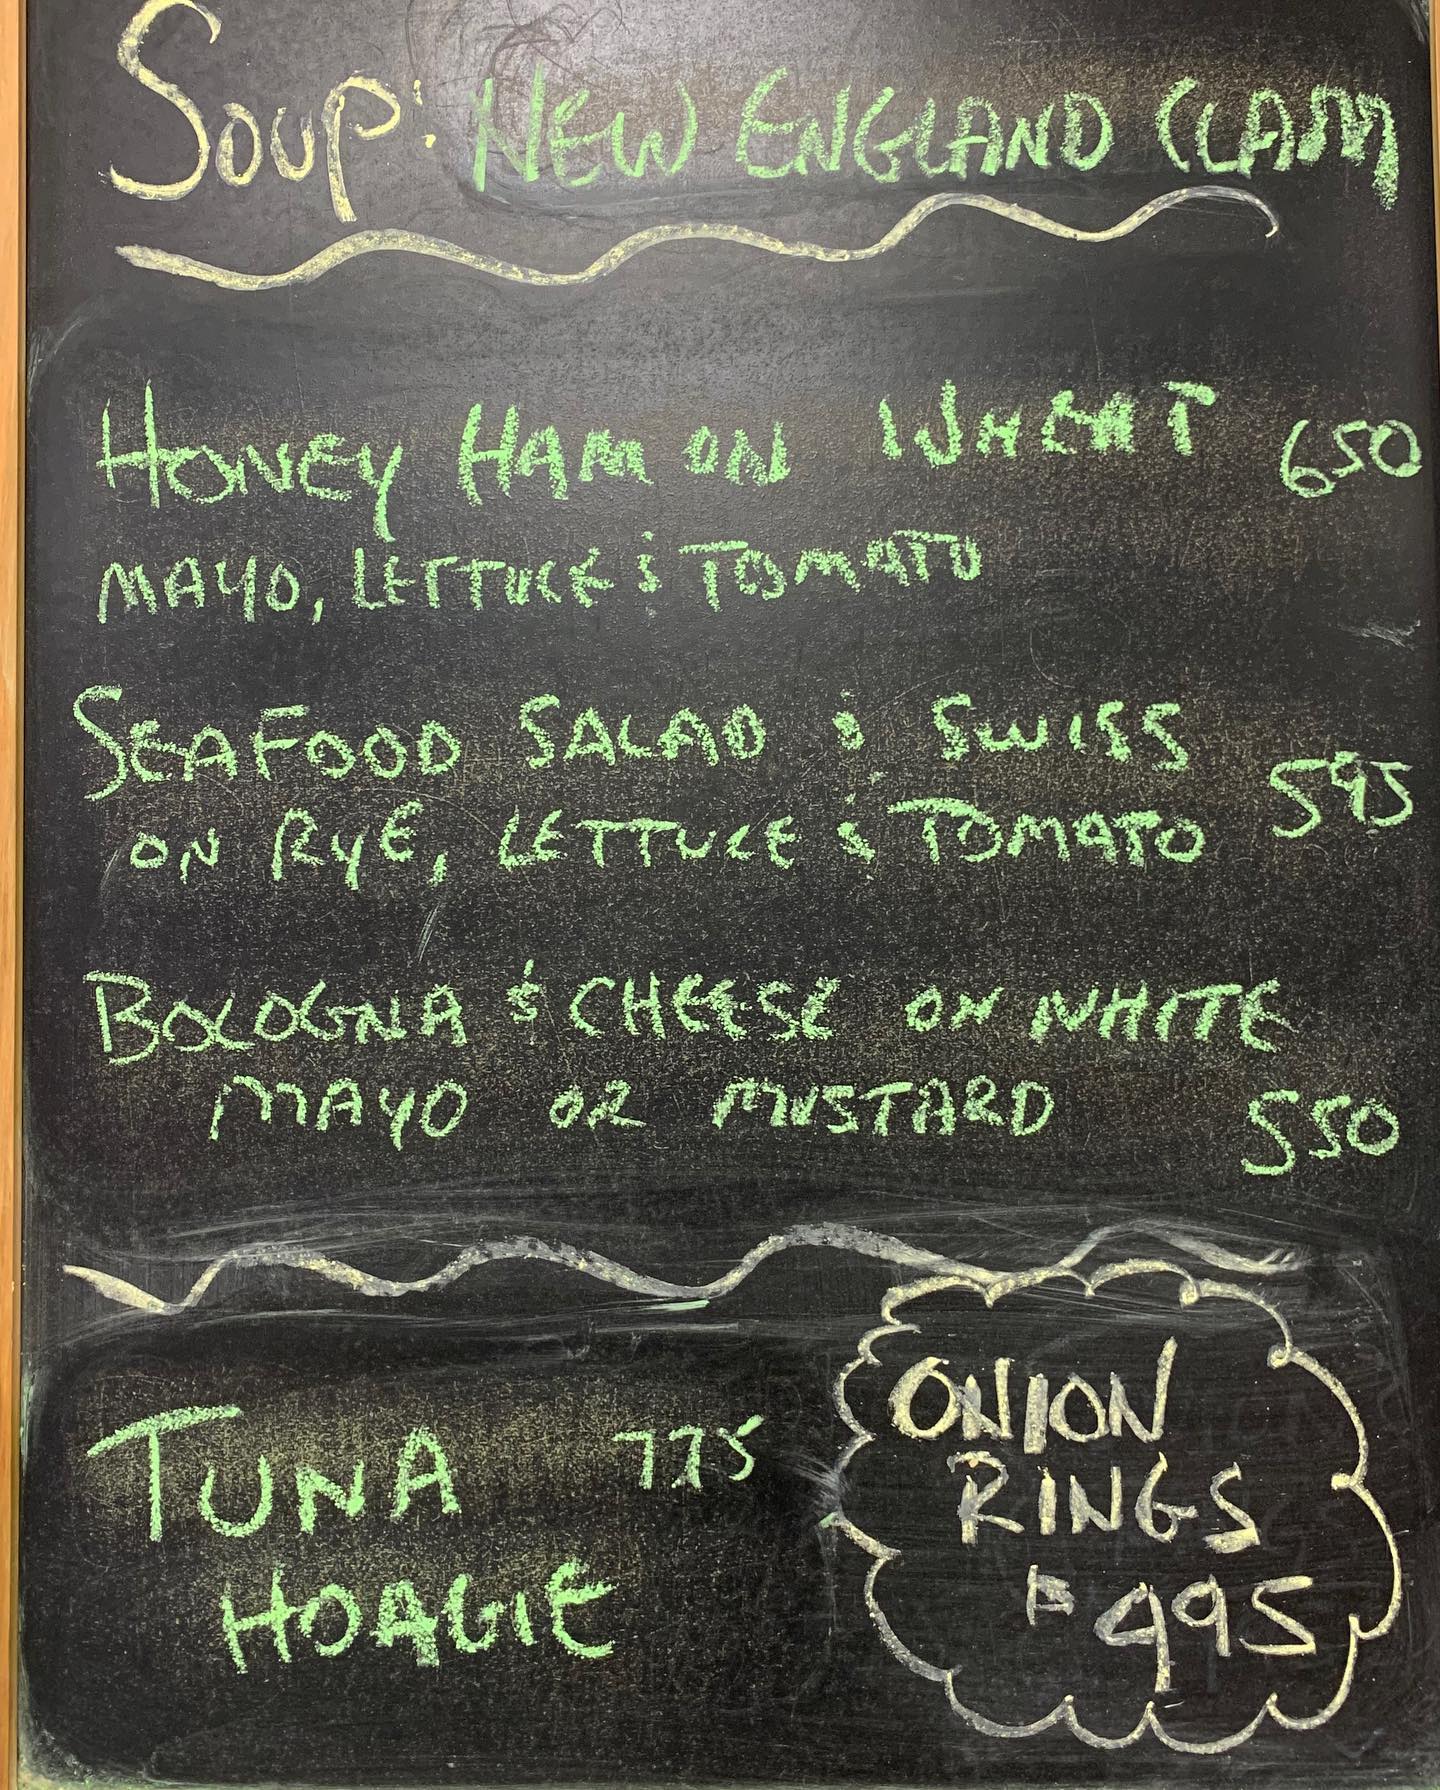 SOUP: NEW ENGLAND CLAM
HONEY HAM ON WHEAT 650
MAYO, LETTUCE & TOMATO
SEAFOOD SALAD & SWISS
ON RYE, LETTUCE & TOMATO 595
BOLOGNA & CHEESE ON WHITE
MAYO OR MUSTARD 550
TUNA 775
HOAGIE
ONION
RINGS
495